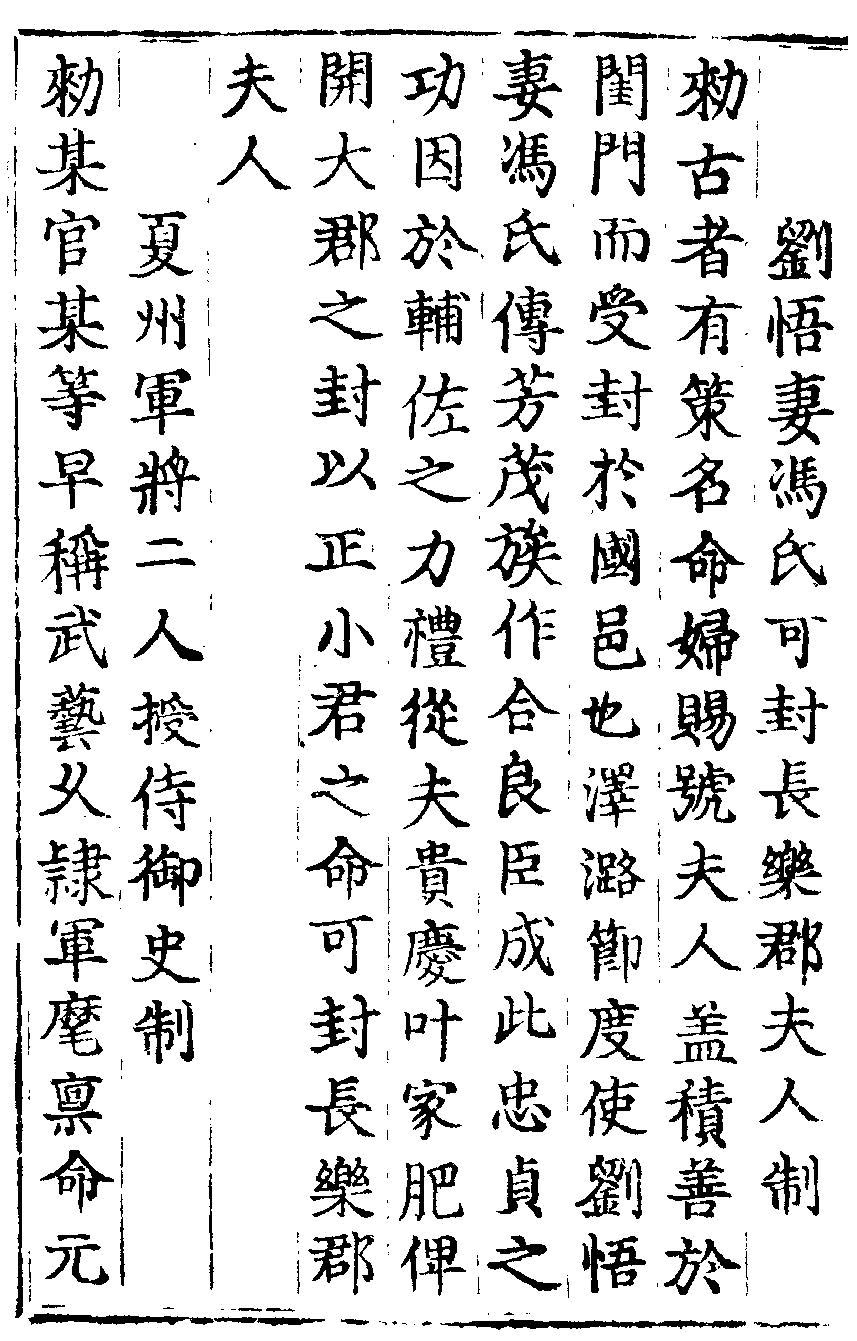 劉悟妻馮氏可封長樂郡夫人制
勑古者有策名命婦賜號夫人盖積善於
閨門而受封於國邑也澤潞節度使劉悟
妻馮氏傳芳茂族作合良臣成此忠貞之
功因於輔佐之力禮從夫貴慶叶家肥俾
開大郡之封以正小君之命可封長樂郡
夫人
夏州軍將二人授侍御史制
勑某官某等早稱武藝久隷軍麾禀命元